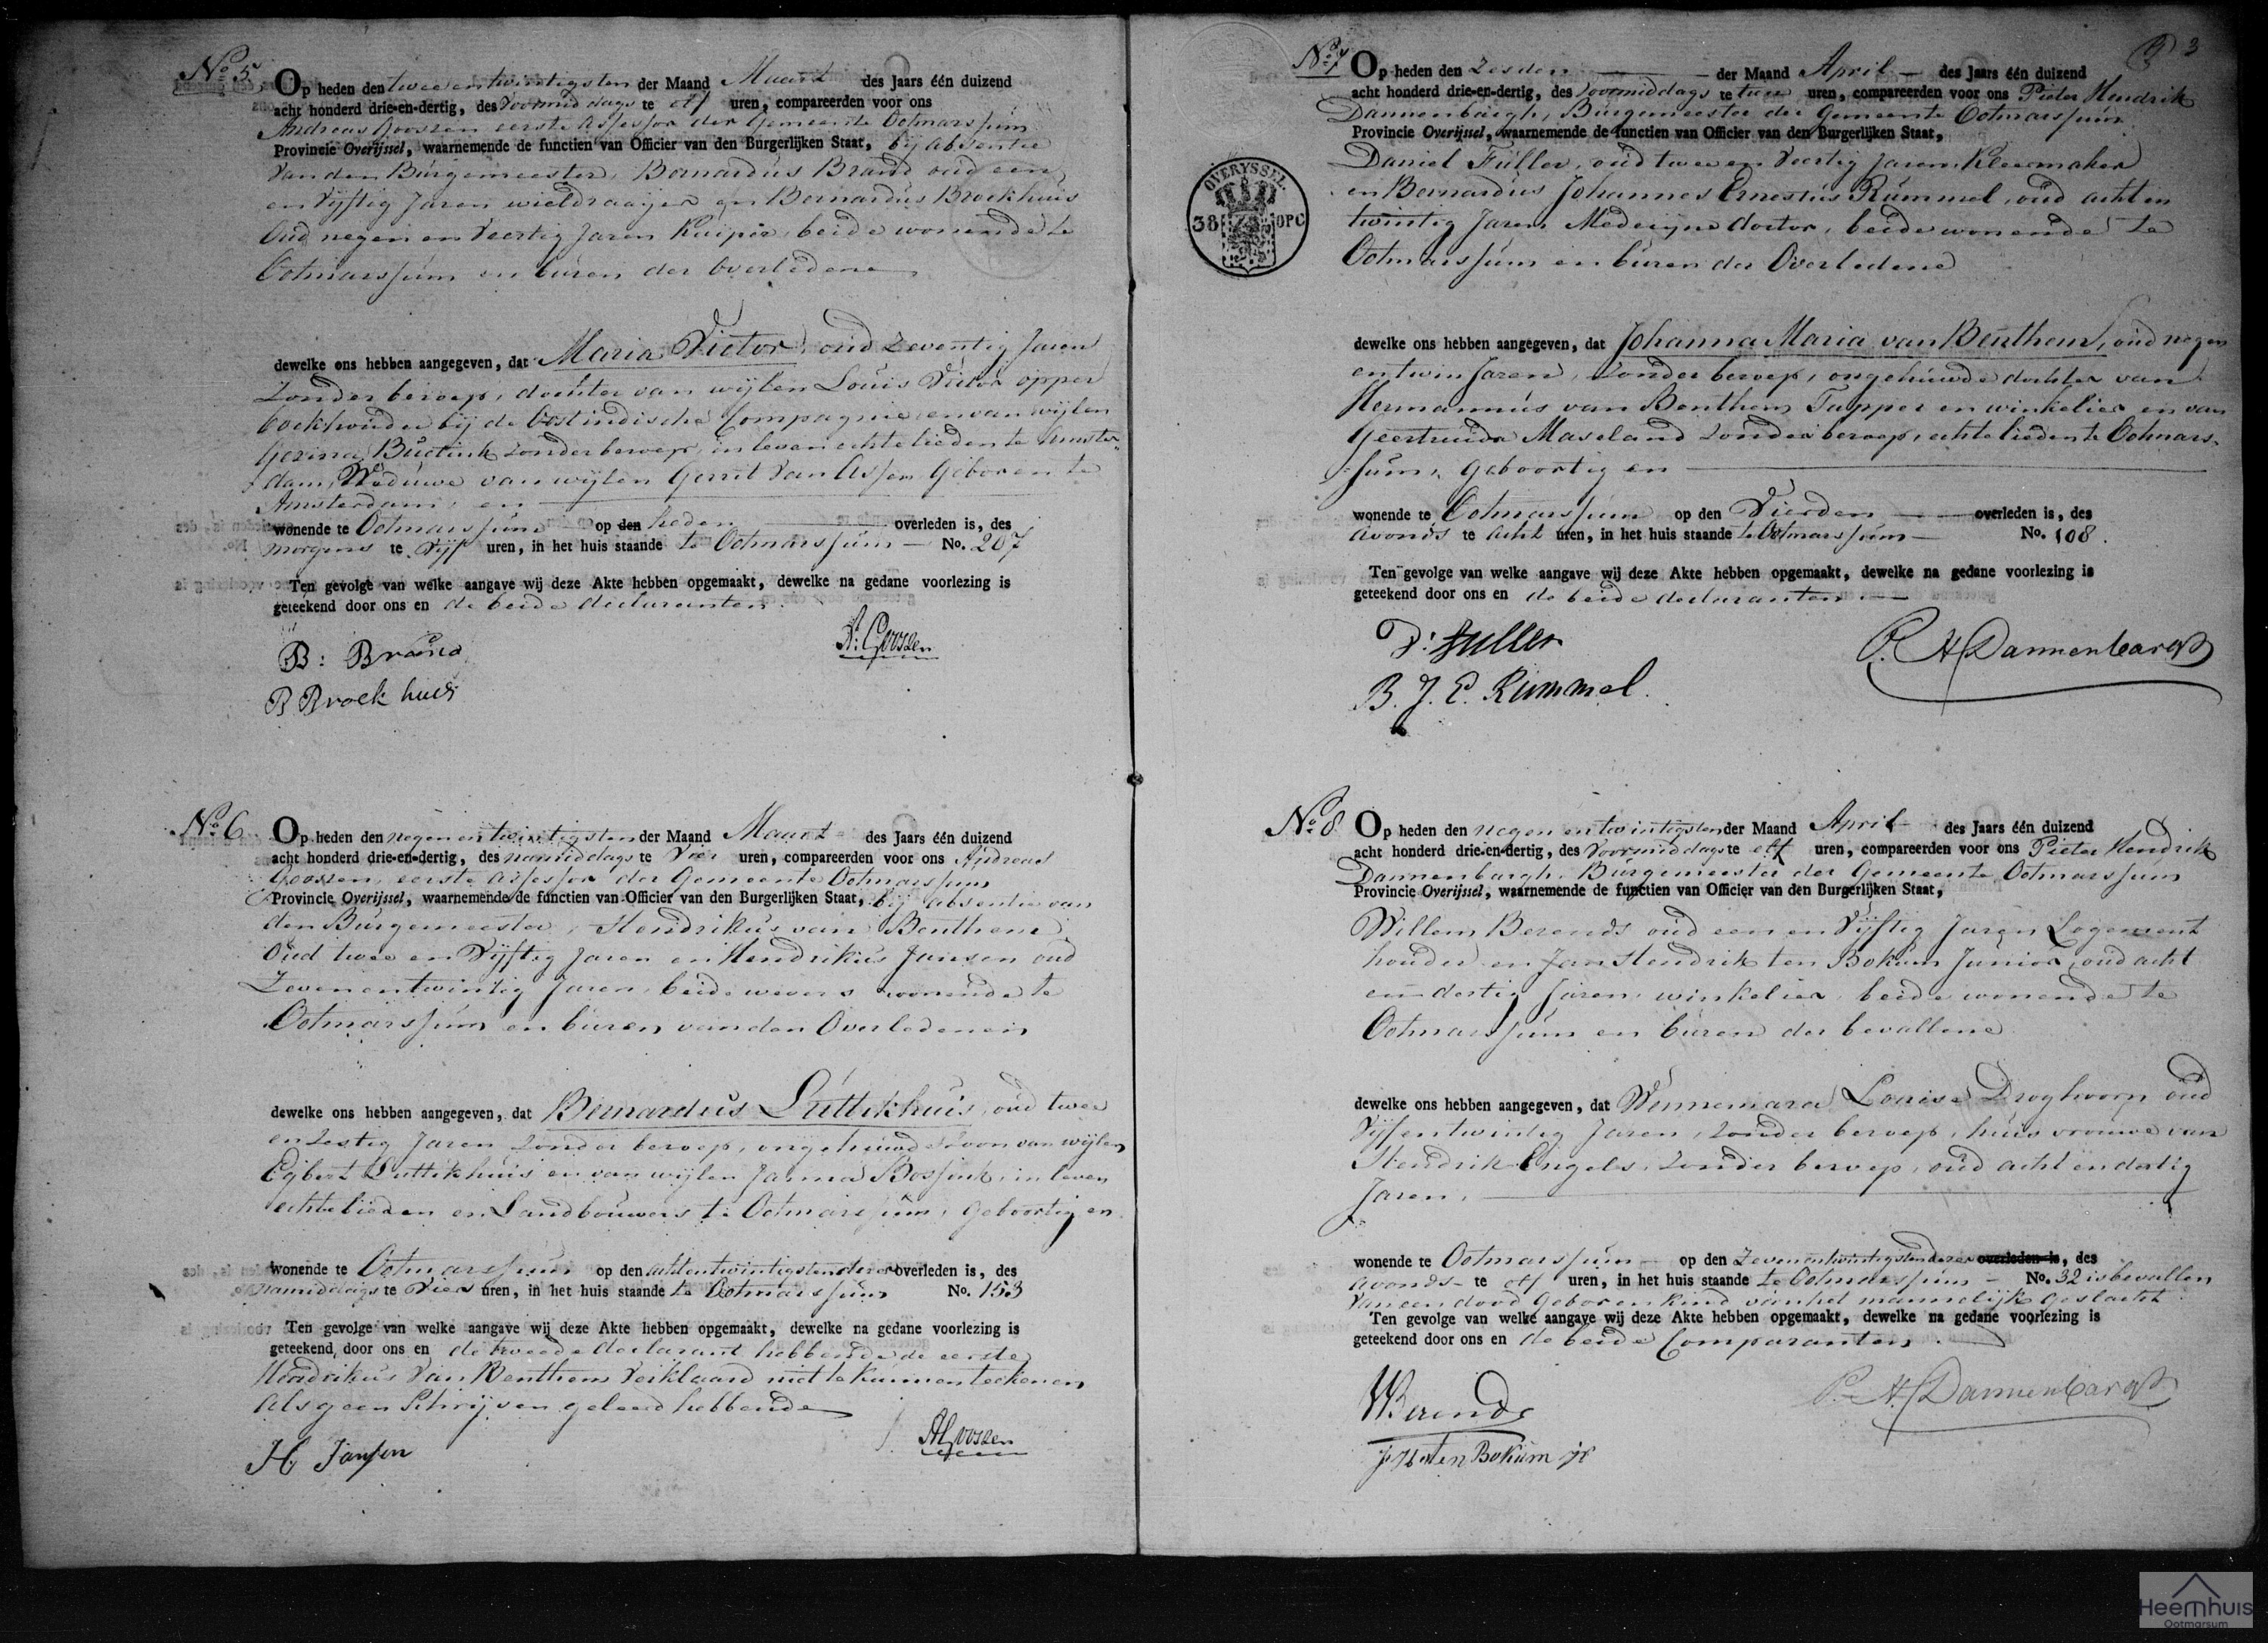 No. 5
Op heden den twee en twintigsten der Maand Maart des Jaars één duizend
acht honderd drie-en-dertig, des voormiddags te elf uren, compareerden voor ons
Andreas Goossen eerste assessor der Gemeente Ootmarssum
Provincie Overijssel, waarnemende de functien van Officier van den Burgerlijken Staat, bij absentie
van den Burgemeester, Bernardus Brand oud een
en vijftig Jaren wieldraaijer en Bernardus Broekhuis
Oud negen en veertig Jaren Kuiper, beide wonende te
Ootmarssum en buren der overledene
dewelke ons hebben aangegeven, dat Maria Victor, oud zeventig Jaren
zonder beroep, dochter van wijlen Louis Victor opper
boekhouder bij de Oostindische Compagnie, en van wijlen
Gezina zonder beroep, in leven echtelieden te Amster
dam, Weduwe van wijlen Gerrit van Assen Geboren te
Amsterdam, en
wonende te Ootmarssum op den heden overleden is, des
morgens te vijf uren, in het huis staande te Ootmarssum No. 207
Ten gevolge van welke aangave wij deze Akte hebben opgemaakt, dewelke na gedane voorlezing is
geteekend door ons en de beide declaranten.
B: Brand
A: Goossen
B Broekhuis
No. 6
Op heden den negen en twintigsten der Maand Maart des Jaars één duizend
acht honderd drie-en-dertig, des namiddags te vier uren, compareerden voor ons Andreas
Goossen, eerste assessor der Gemeente Ootmarssum
Provincie Overijssel, waarnemende de functien van Officier van den Burgerlijken Staat, bij absentie van
den Burgemeester, Hendrikus van Benthem
Oud twee en vijftig Jaren en Hendrikus Jansen oud
Zeven en twintig Jaren, beide wevers wonende te
Ootmarssum en buren van den Overledenen
dewelke ons hebben aangegeven, dat Bernardus Luttikhuis, oud twee
en zestig Jaren zonder beroep, ongehuwde Zoon van wijlen
Egbert Luttikhuis en van wijlen Janna Bossink, in leven
echtelieden en Landbouwers te Ootmarssum, Geboortig en
wonende te Ootmarssum op den achtentwintigsten dezer overleden is, des
namiddags te vier uren, in het huis staande te Ootmarssum No. 153
Ten gevolge van welke aangave wij deze Akte hebben opgemaakt, dewelke na gedane voorlezing is
geteekend door ons en de tweede declarant hebbende de eerste
Hendrikus van Benthem verklaard niet te kunnen teekenen
als geen schrijven geleerd hebbende
H. Jansen
A Goossen
3
No. 7
Op heden den Zesden der Maand April des Jaars één duizend
acht honderd drie-en-dertig, des voormiddags te twee uren, compareerden voor ons Pieter Hendrik
Dannenbargh, Burgemeester der Gemeente Ootmarssum
Provincie Overijssel, waarnemende de functien van Officier van den Burgerlijken Staat,
Daniel Fuller, oud twee en veertig Jaren Kleermaker
en Bernardus Johannes Ernestus Rummel, oud acht en
twintig Jaren Medicijne doctor, beide wonende te
Ootmarssum en buren der Overledene
OVERYSSEL.
38 OPC
dewelke ons hebben aangegeven, dat Johanna Maria van Benthem, oud negen
en twin Jaren, zonder beroep, ongehuwde dochter van
Hermannus van Benthem Tapper en winkelier en van
Geertruida Maseland zonder beroep, echtelieden te Ootmars-
sum, Geboortig en
wonende te Ootmarssum op den Vierden overleden is, des
avonds te acht uren, in het huis staande te Ootmarssum No. 108.
Ten gevolge van welke aangave wij deze Akte hebben opgemaakt, dewelke na gedane voorlezing is
geteekend door ons en de beide declaranten.
D: Fuller
P. H Dannenbargh
B. J. E. Rummel.
No. 8
Op heden den negen en twintigsten der Maand April des Jaars één duizend
acht honderd drie-en-dertig, des voormiddags te elf uren, compareerden voor ons Pieter Hendrik
Dannenbargh, Burgemeester der Gemeente Ootmarssum
Provincie Overijssel, waarnemende de functien van Officier van den Burgerlijken Staat,
Willem Berends oud een en vijftig Jaren Logement
houder en Jan Hendrik ten Bokum Junior, oud acht
en dertig Jaren, winkelier, beide wonende te
Ootmarssum en buren der bevallene
dewelke ons hebben aangegeven, dat Wennemara Louisa Droghoorn oud
Vijf en twintig Jaren, zonder beroep, huisvrouwe van
Hendrik Engels, zonder beroep, oud acht en dertig
Jaren,
wonende te Ootmarssum op den Zevenentwintigsten dezer overleden is, des
avonds te elf uren, in het huis staande te Ootmarssum No. 32 is bevallen
van een dood geboren kind van het mannelijk geslacht.
Ten gevolge van welke aangave wij deze Akte hebben opgemaakt, dewelke na gedane voorlezing is
geteekend door ons en de beide Comparanten.
WBerends
P. H. Dannenbargh
JH ten Bokum jr
Heemhuis
Ootmarsum